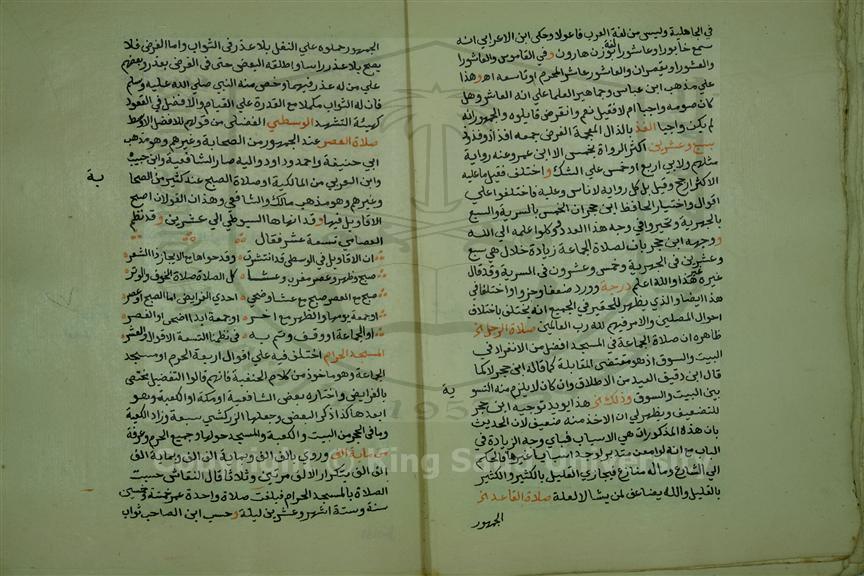 في الجاهلية وليس من لغة العرب فاعولا وحكى ابن الاعرابي انه
سمع خابورا وعاشورا لغة نوزن هارون وفي القاموس والعاشورا
والعشورا ويقصران والعاشور عاشر المحرم او تاسعه اه وهذا
على مذهب ابن عباس وجماهير العلما على انه العاشر وهل
كان صومه واجبا ام لا فقيل نعم وانقرض قايلوه والجمهور انه
لم يكن واجبا الفذ بالذال المعجمة الفرض جمعه افذاذ وفذوذ
بسبع وعشرين اكثر الرواة بخمس الا ابن عمر وعنه رواية
مثلهم ولابي اربع او خمس على الشك واختلف فقيل ما عليه
الاكثر ارجح وقيل بل كل رواية لاناس وعليه فاختلفوا على
اقوال واختيار الحافظ ابن حجر ان الخمس بالسرية والسبع
بالجهرية وتحيروا في وجه هذا العدد وكلوا علمه الى الله
ووجهه ابن حجر بان لصلاة الجماعة زيادة خلال هي سبع
وعشرين في الجهرية وخمس وعشرون في السرية وقد قال
غيره غير هذا والله اعلم درجة وورد ضعفا وجزوا واختلفا في
هذا ايضا والذي يظهر للحقير في الجميع انه يختلف باختلاف
احوال المصلين والامر فيهم لله رب العالمين صلاة الرجل الخ
ظاهره ان صلاة الجماعة في المسجد افضل من الانفراد في
البيت والسوق اذ هو مقتضى المقابلة كما قاله ابن حجر لا كما
قال ابن دقيق العيد من الاطلاق وان كان لا يلزم منه التسو
ية
بين البيت والسوق وذلك الخ هذا يويد توجيه ابن حجر
للتضعيف ويظهر لي ان الاخذ منه ضعيف لان الحديث
بان هذه المذكورات هي الاسباب فباي وجه الزيادة في
الباب مع انه لو امعن متدبر لوجد اسبابا غيرها فالحكم
الى الشارع وماله منازع فيجازي القليل بالكثير والكثير
بالقليل والله يضاعف لمن يشا لا لعلة صلاة القاعد الخ
الجمهور
الجمهور حملوه على النفل بلا عذر في الثواب واما الفرض فلا
يصح بلا عذر راسا واطلقه البعض حتى في الفرض بعذر وبعضهم
على من له عذر فيهما وخص منه النبي صلى الله عليه وسلم
فان له الثواب مكملا مع القدرة على القيام والافضل في القعود
كهيئة التشهد الوسطى الفضلى من قولهم للافضل الاوسط
صلاة العصر عند الجمهور من الصحابة وغيرهم وهو مذهب
ابي حنيفة واحمد وداود واليه صار الشافعية وابن حبيب
وابن العربي من المالكية او صلاة الصبح عند كثير من الصحا
بة
وغيرهم وهو مذهب مالك والشافعي وهذان القولان اصح
الاقاويل فيها وقد انهاها السيوطي الى عشرين وقد نظم
العصامي تسعة عشر فقال
ان الاقاويل في الوسطى قد انتشرت وقد حواها مع الايجاز ذا الشعر
صبح وظهر وعصر مغرب وعشا كل الصلاة صلاة الخوف والوتر
صبح مع العصر صبح مع عشا وضحى احدي الفرايض اما الصبح او عصر
او جمعة يومها والظهر مع اخر او جمعة ابدا اضحى او الفطر
او الجماعة او وقف وتم به في نظمنا التسعة الاقوال والعشر
المسجد الحرام اختلف فيه على اقوال اربعة الحرم او مسجد
الجماعة وهو ماخوذ من كلام الحنفية فانهم قالوا التفضيل يختص
بالفرايض واختاره بعض الشافعية او مكة او الكعبة وهو
ابعدها كذا ذكر البعض وجعلها الزركشي سبعة وزاد الكعبة
وما في الحجر من البيت والكعبة والمسجد حولها وجميع الحرم وعرفة
من ماية الف وروي بالف الف وبماية الف الف وبماية الف
الف الف بتكرار الالف مرتين وثلاثا قال النقاش حسبت
الصلاة بالمسجد الحرام فبلغت صلاة واحدة عمر خمسة وخمسين
سنة وستة اشهر وعشرين ليلة وحسب ابن الصاحب ثواب